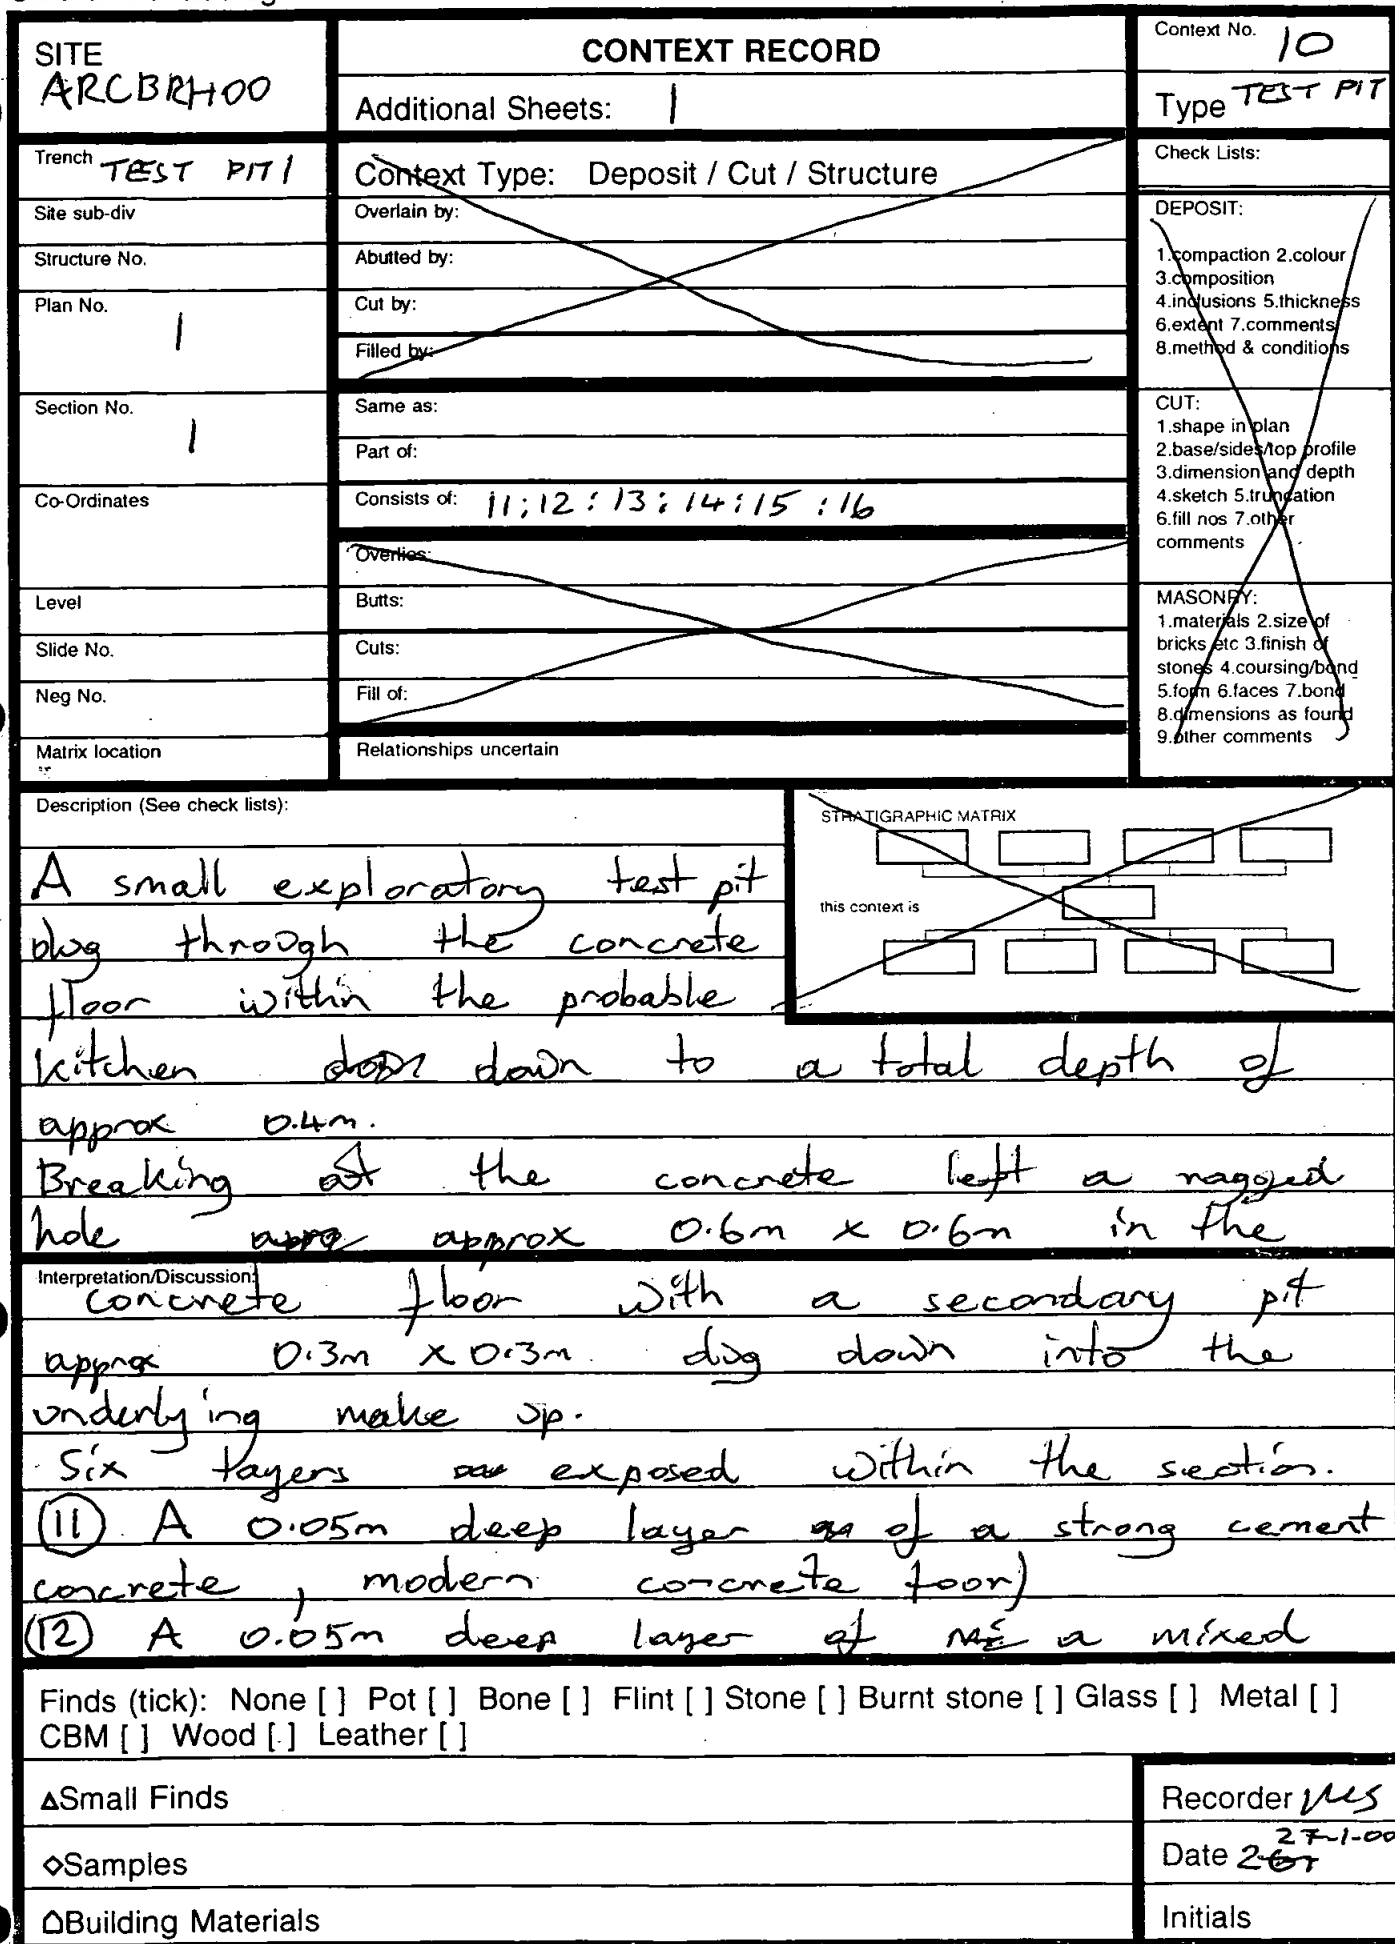 SITE
ARCBRH00
CONTEXT RECORD
Additional Sheets: 1
Context No. 10
Type TEST PIT
Trench TEST PIT 1
Site sub-div
Structure No.
Plan No.
1
Section No.
1
Co-Ordinates
Level
Slide No.
Neg No.
Matrix location
Context Type: Deposit / Cut / Structure
Overlain by:
Abutted by:
Cut by:
Filled by:
Same as:
Part of:
Consists of: 11:12:13:14:15:16
Overlies:
Butts:
Cuts:
Fill of:
Relationships uncertain
Check Lists:
DEPOSIT:
1.compaction 2.colour
3.composition
4.inclusions 5.thickness
6.extent 7.comments
8.method & conditions
CUT:
1.shape in plan
2.base/sides/top profile
3.dimension and depth
4.sketch 5.truncation
6.fill nos 7.other
comments
MASONRY:
1.materials 2.size of
bricks etc 3.finish of
stones 4.coursing/bond
5.form 6.faces 7.bond
8.dimensions as found
9.other comments
Description (See check lists):
STRATIGRAPHIC MATRIX
this context is
A small exploratory test pit
dug through the concrete
floor within the probable
kitchen down to a total depth of
approx 0.4m.
Breaking the concrete left a ragged
hole approx 0.6m x 0.6m in the
Interpretation/Discussion:
concrete floor with a secondary pit
approx 0.3m x 0.3m dug down into the
underlying make up.
Six layers exposed within the section.
(11) A 0.05m deep layer of a strong cement
concrete, modern concrete foor)
(12) A 0.05m deep layer of a mixed
Finds (tick): None [ ] Pot [ ] Bone [ ] Flint [ ] Stone [ ] Burnt stone [ ] Glass [ ] Metal [ ]
CBM [ ] Wood [ ] Leather [ ]
△Small Finds
◇Samples
Building Materials
Recorder
Date 27-1-00
Initials